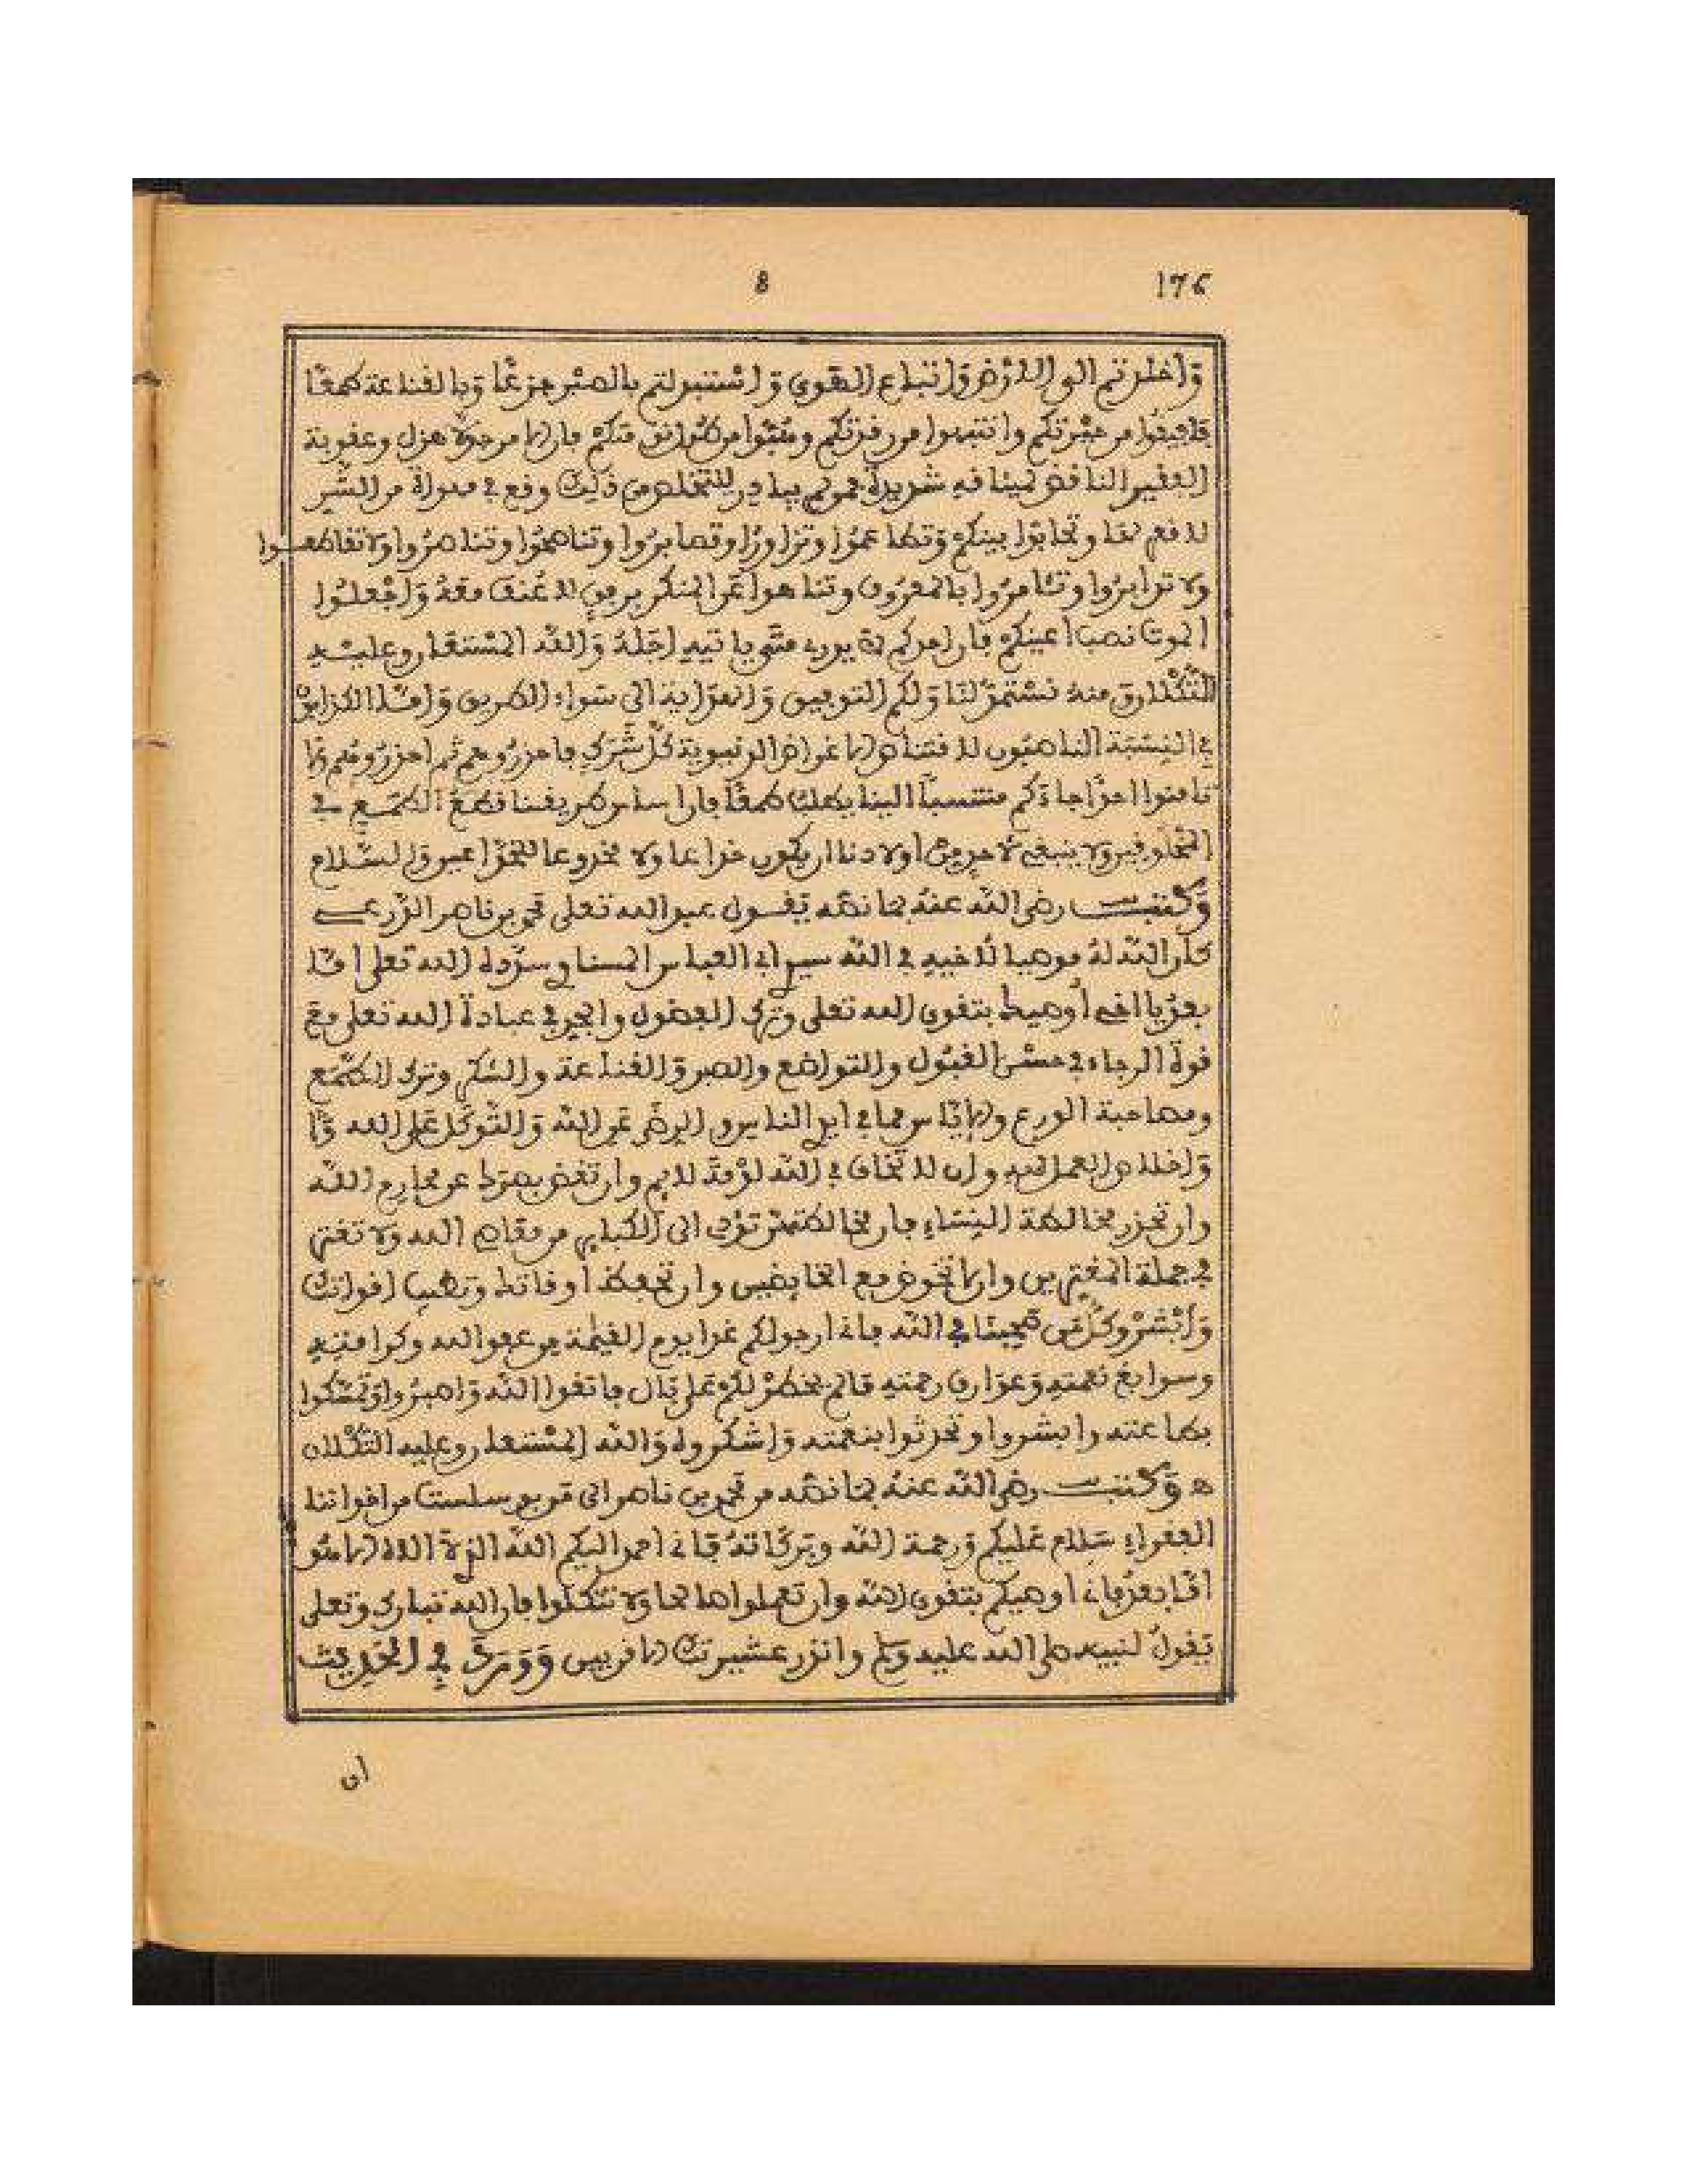 8 176
وَأخلدتم إلى الأرض وَاتباع الهوى وَاستبدلتم بالصبر جزعًا وَبالقناعة طمعًا
فأفيقوا من غمرتكم وانتبهوا من رقدتكم وتوبوا من فإن من جملة وعقوبة
الفقير الناقض لميثاقه شديدة فمن لم يبادر للتخلص من ذلك وقع في من الشر
لا دفع لها وتحابّوا بينكم وَتطاعموا وتزاوروا وتصابروا وتناصحوا وتناصروا ولا تقاطعوا
ولا تدابروا وتئامروا بالمعروف وتناهوا عَن المنكر برفق لا عُنف معَهُ وَاجْعلوا
الموت نصب أعينكم فإن أحدكم لا يدري متى ياتيه أجَلهُ وَالله المسْتعان وعليه
التكلان ومنه نستمدّ لنَا وَلكم التوفيق وَالهدَاية الى سَواء الطريق وَأمّا الكذابون
في النِسْبَة الناصبُون لاقتناص الاغراض الدنيوية كلّ شَرَك فاحذروهم ثم احذروهم ولا
تامنوا احدًا جاءكم منتسبًا الينا يطلب طمعًا فإن أساس طريقنا قطع الطمَع في
المخلوقين ولا ينبغي لأحد من أولادنا ان يكون خداعا ولا مخدوعا وَالسّلام
وَكتب رضي الله عنهُ بما نصّه يَقول عبد الله تعلى محمد بن ناصر الدّرعي
كان الله لهُ موصيا لأخيه في الله سيدي أبي العباس سدّده الله تعلى أمّا
بعدُ يا أخي أوصيك بتقوى الله تعلى وترك الفضول والجد في عبادة الله تعلى مع
قوة الرجاء في حسْن القبُول والتواضع والصبر وَالقناعة والشكر وترك الطمَع
ومصاحبة الورع والإيّاس مما في أيدي الناس والرضى عَن الله وَالتّوكل عَلى الله
وَإخلاص العمل لله وان لا تخَاف في الله لوْمةَ لائم وان تغض بصرك عن محارم الله
وان تحذر مخالطة النِسَاء فإن مخالطتهنّ تؤدي الى الكبائر من معاصي الله ولا تغتر
في جملة المغترين وان لا تخوض مع الخايضين وان تحفظ أوقاتك وتطيب أقواتك
وَأبْشرْ وكلّ مَن مُحبينا في الله فإني أرجو لكم غدا يوم القيمة من عفو الله وكرامته
وسوابغ نعمته وَعوَارف رحمته مَا لم يخطرْ لكم عَلى بَال فاتقوا الله وَاصبرُوا وَتمسّكوا
بطاعته وابشروا وتحدثوا بنعمته وَاشكروه وَالله المسْتعان وعليه التكلان
ه وَكتب رضي الله عنهُ بما نصّه من محمد بن ناصر الى من اخواننا
الفقراء سَلام عَليكم وَرحمة الله وبَركاتهُ فإني أحمد اليكم الله الذي لا اله الا هو
أمّا بعدُ فإني أوصيكم بتقوى الله وان تعملوا صالحا ولا تتّكلوا فإن الله تبارك وتعلى
يَقولُ لنبيه صلى الله عليه وسلم وانذر عشيرتك الاقربين وَوَردَ في الحَديث
ان